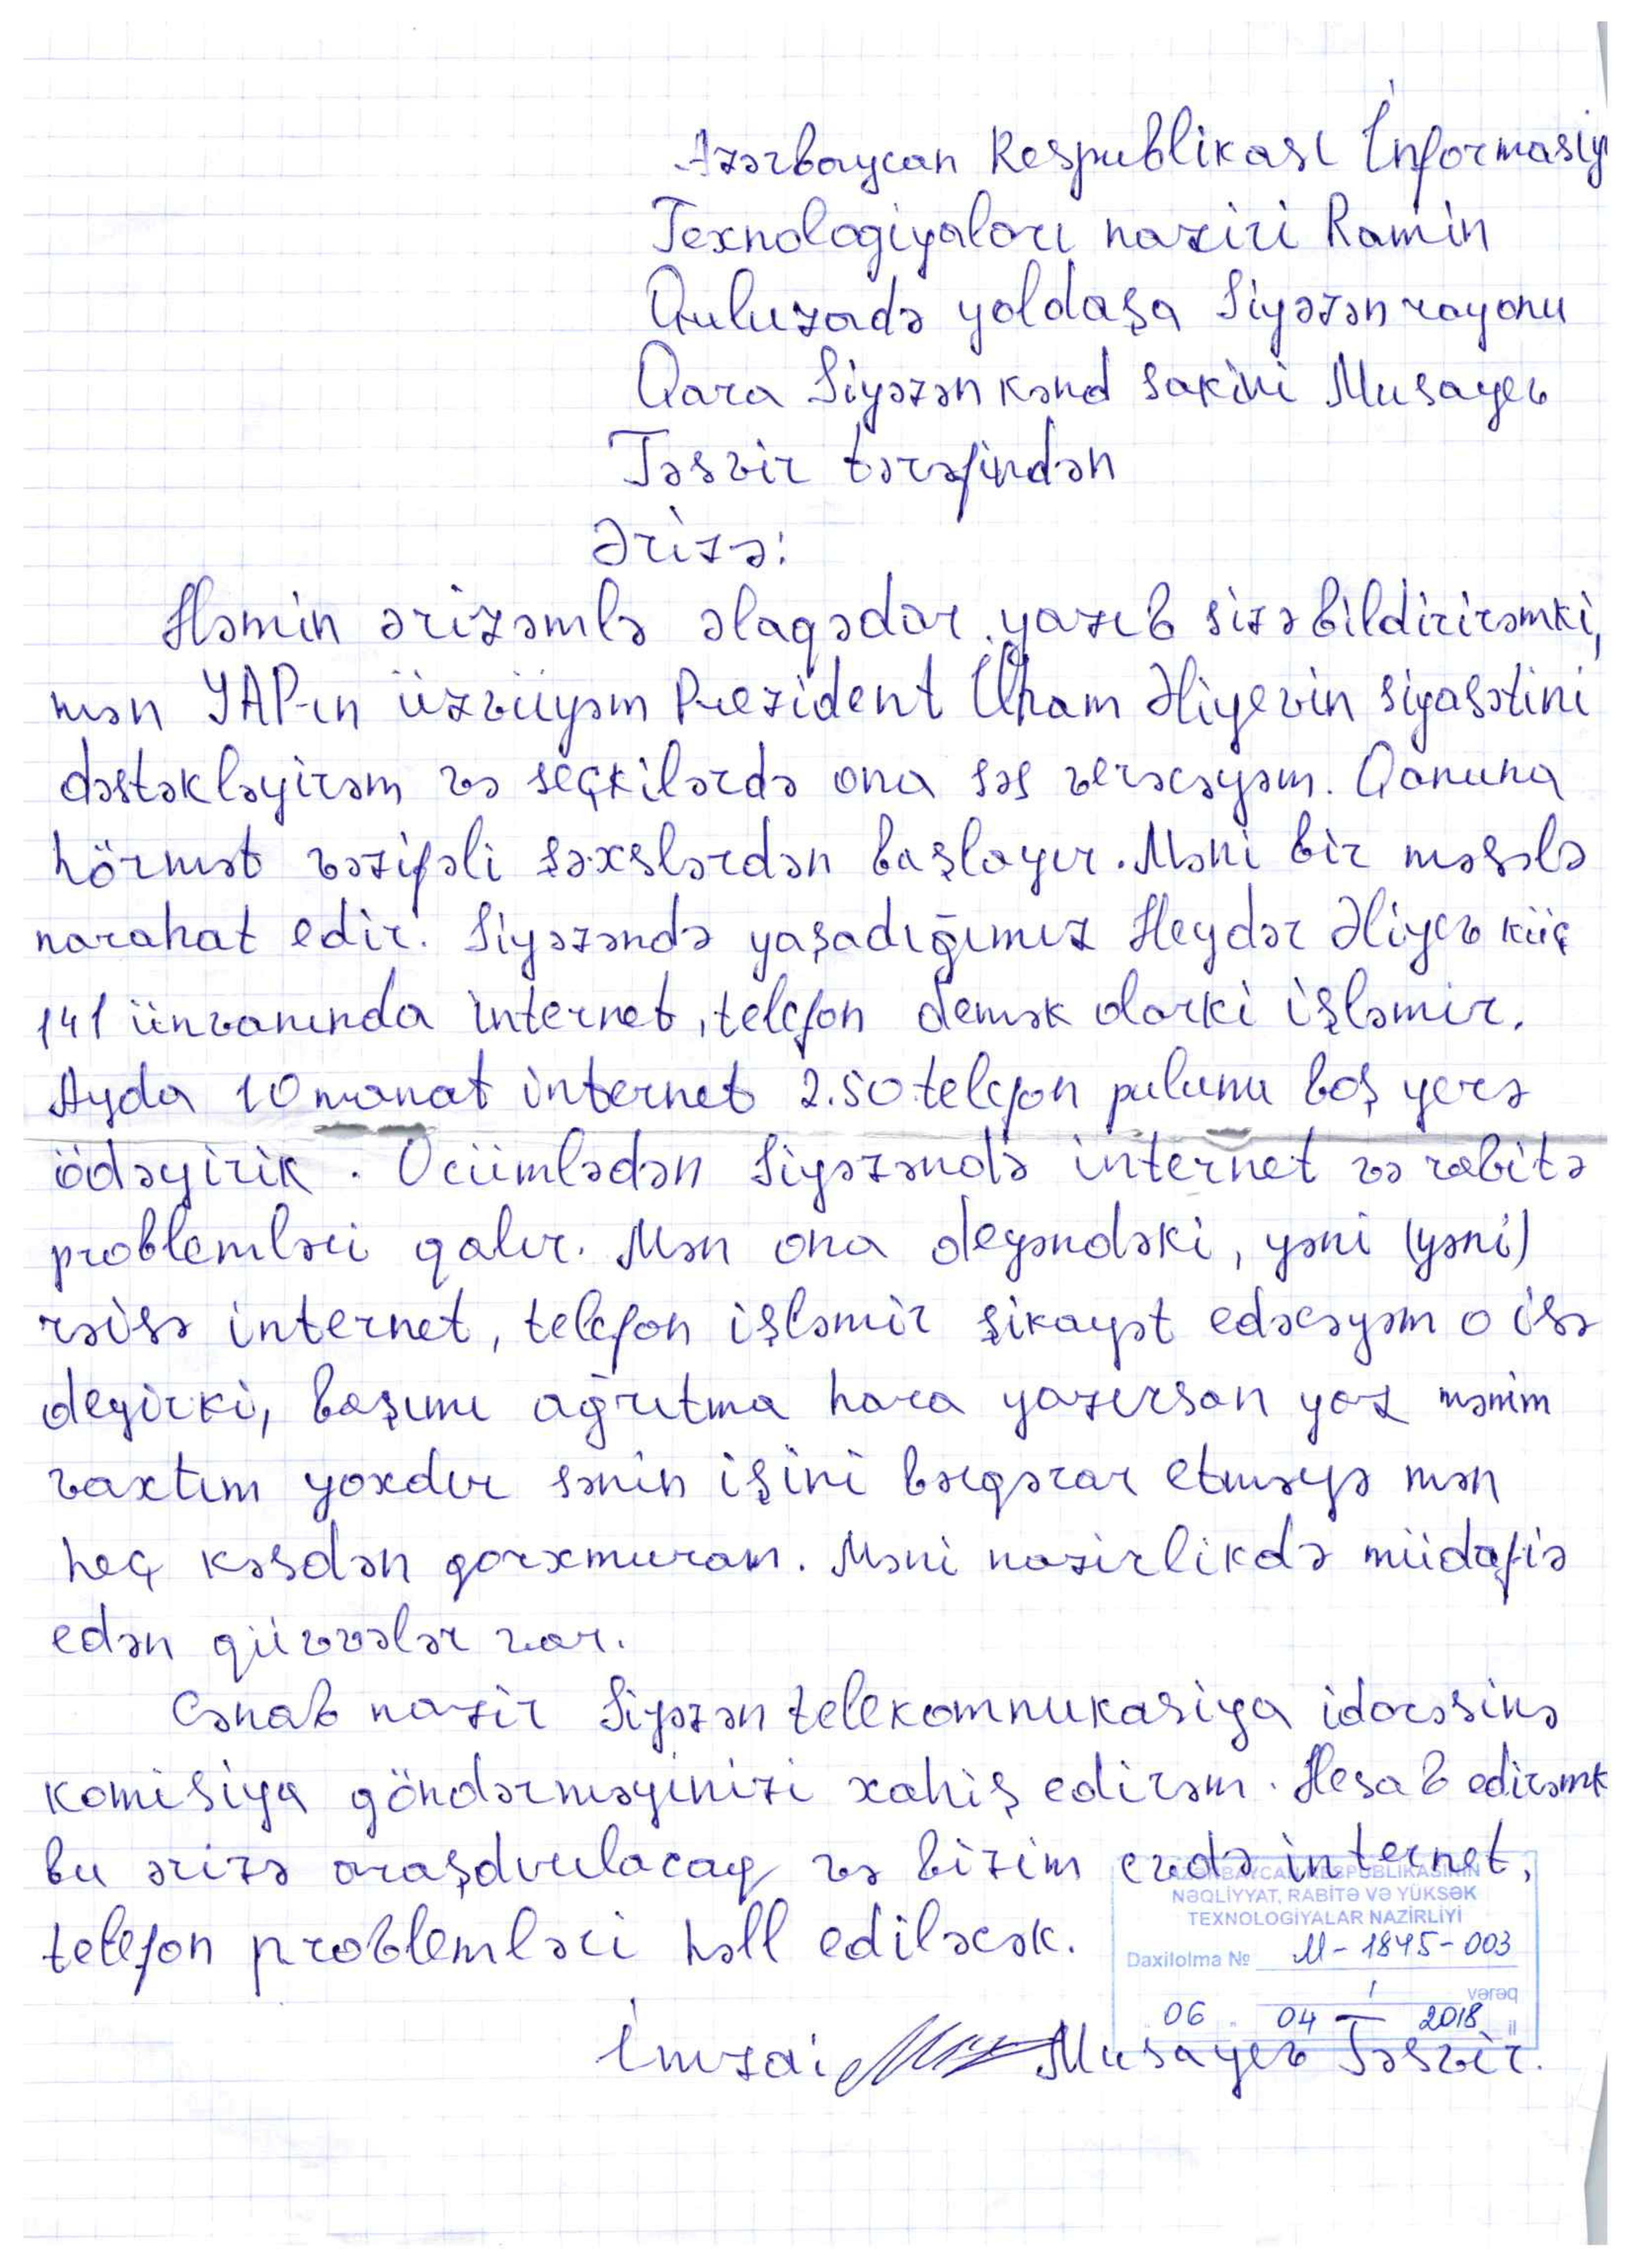 Azərbaycan Respublikası İnformasiy
Texnologiyaları naziri Ramin
Quluzadə yoldaşa Siyəzən rayonu
Qara Siyəzən kənd sakini Musayev
Təsvir tərəfindən
Ərizə:
Həmin ərizəmlə əlaqədar yazıb sizə bildirirəmki,
mən YAP-ın üzvüyəm Prezident İlham Əliyevin siyasətini
dəstəkləyirəm və seçkilərdə ona səs verəcəyəm. Qanuna
hörmət vəzifəli şəxslərdən başlayır. Məni bir məsələ
narahat edir. Siyəzəndə yaşadığımız Heydər Əliyev küç
141 ünvanında internet, telefon demək olarki işləmir.
Ayda 10 manat internet 2.50 telefon pulunu boş yerə
ödəyirik. Ocümlədən Siyəzəndə internet və rabitə
problemləri qalır. Mən ona deyəndəki, yəni (yəni)
rəisə internet, telefon işləmir şikayət edəcəyəm o isə
deyirki, başımı ağrıtma hara yazırsan yaz mənim
vaxtım yoxdur sənin işini bərqərar etməyə mən
heç kəsdən qorxmuram. Məni nazirlikdə müdafiə
edən qüvvələr var.
Cənab nazir Siyəzən telekomnukasiya idarəsinə
komisiya göndərməyinizi xahiş edirəm. Hesab edirəmk
bu ərizə araşdırılacaq və bizim evdə internet,
telefon problemləri həll ediləcək.
AZƏRBAYCAN RESPUBLİKASININ
NƏQLİYYAT, RABİTƏ VƏ YÜKSƏK
TEXNOLOGİYALAR NAZİRLİYİ
Daxilolma № M-1845-003
1 vərəq
06 04 2018 il
İmza: Musayev Təsvir.